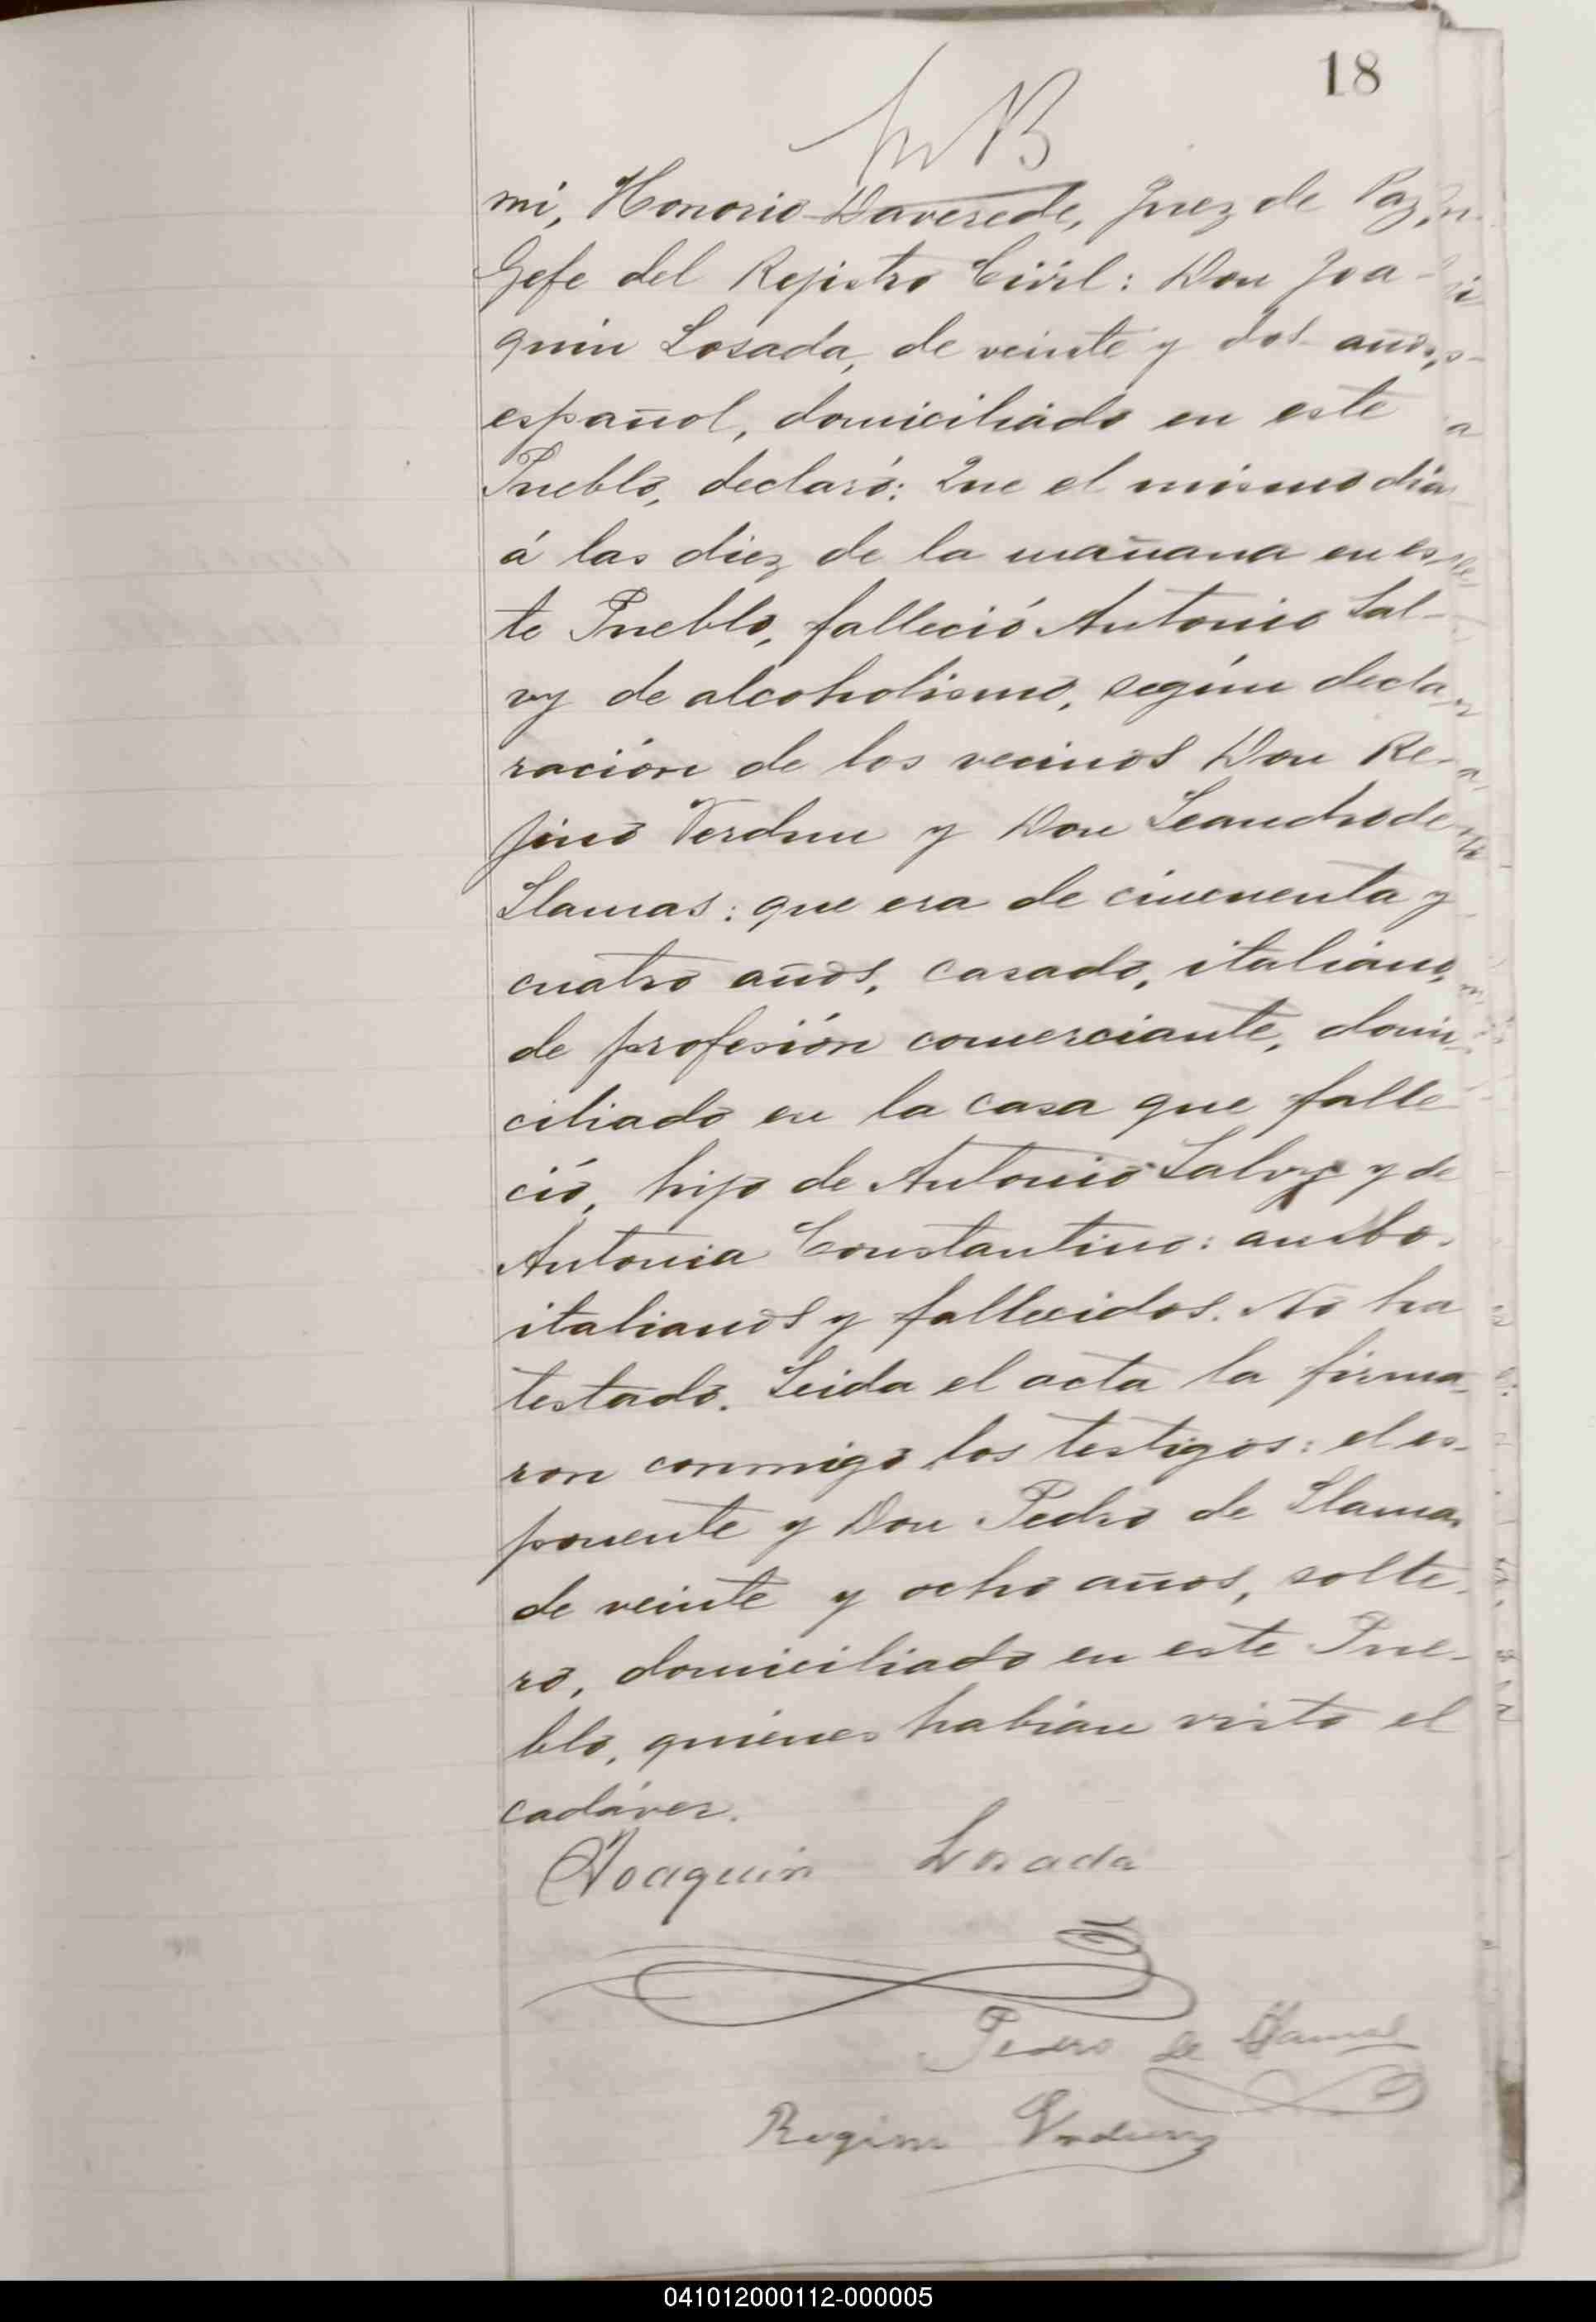 18
mi, Honorio Daverede, Juez de Paz,
Gefe del Rejistro Civil: Don Joa-
quin Losada, de veinte y dos años,
español, domiciliado en este
Pueblo, declaró: Que el mismo dia
á las diez de la mañana en es-
te Pueblo, falleció Antonio Sal-
vy de alcoholismo, según decla
ración de los vecinos Don Re-
jino Verdun y Don Leandro de
Llamas: que era de cincuenta y
cuatro años, casado, italiano,
de profesión comerciante, domi
ciliado en la casa que falle
ció, hijo de Antonio Salvy y de
Antonia Constantino: ambos
italianos y fallecidos. No ha
testado. Leida el acta la firma
ron conmigo los testigos: el es-
ponente y Don Pedro de Llamas
de veinte y ocho años, solte-
ro, domiciliado en este Pue-
blo, quienes habian visto el
cadáver.
Joaquin Losada
Pedro de Llamas
Regino Verdun
041012000112-000005